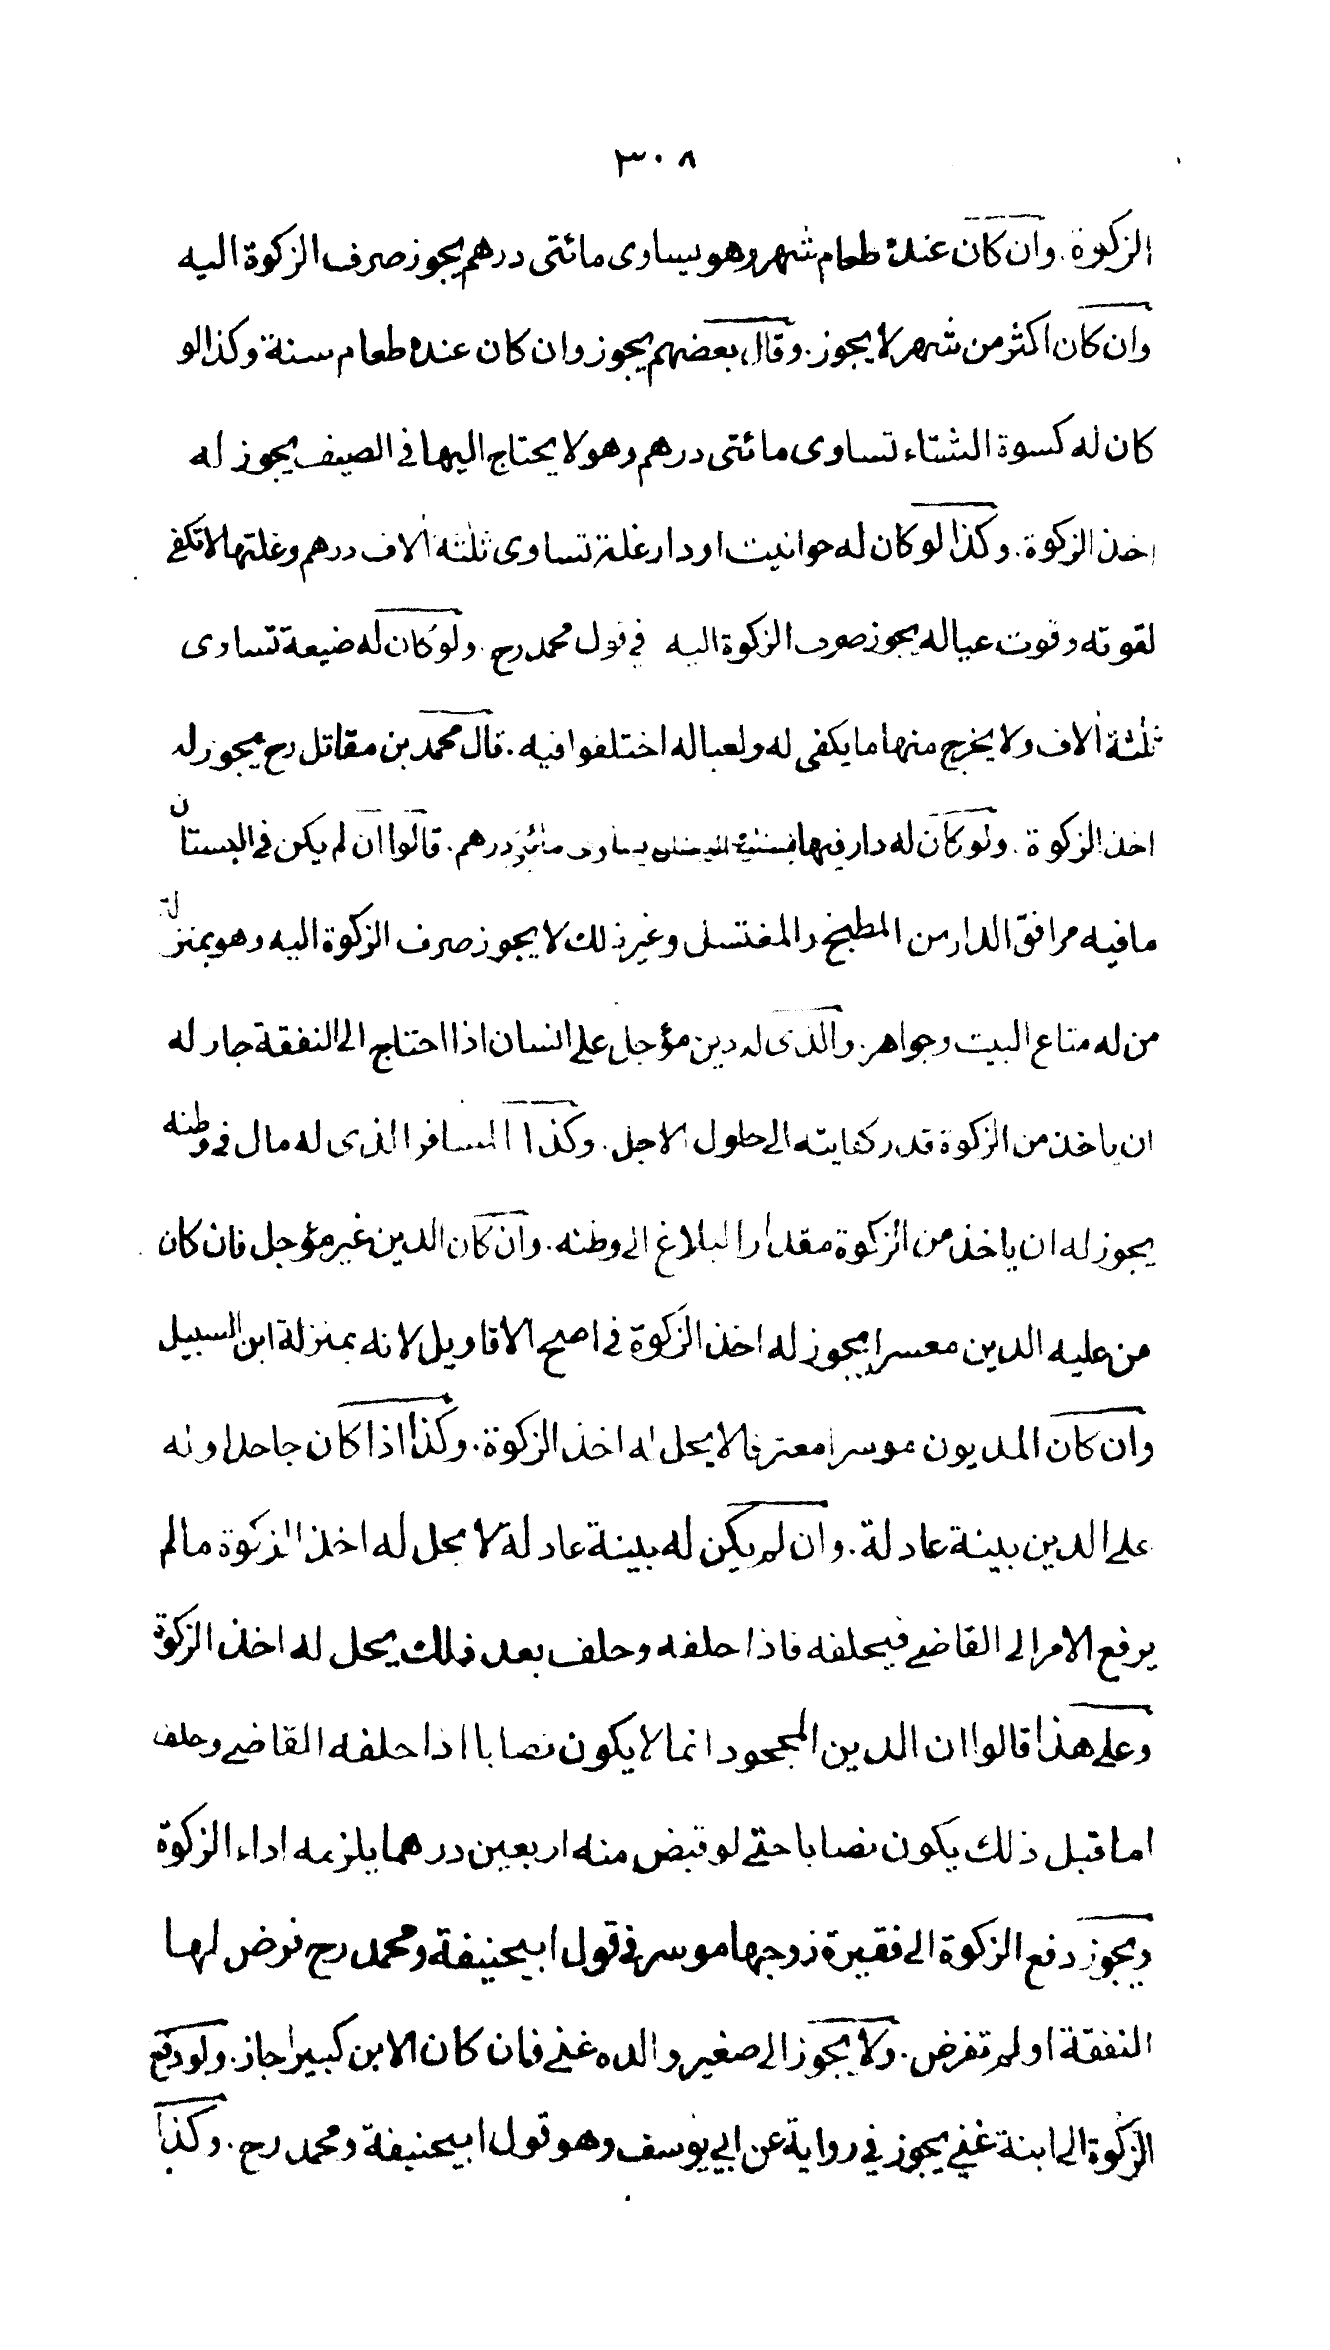 ٣٠٨
الزكوة. وان كان عنده طعام شهر وهو يساوى مائتى درهم يجوز صرف الزكوة اليه
وان كان اكثر من شهر لا يجوز. وقال بعضهم يجوز وان كان عنده طعام سنة وكذا لو
كان له كسوة الشتاء تساوى مائتى درهم وهو لا يحتاج اليها فى الصيف يجوز له
اخذ الزكوة. وكذا لو كان له حوانيت او دار غلة تساوى ثلثة الاف درهم وغلتها لا تكفى
لقوته وقوت عياله يجوز صرف الزكوة اليه فى قول محمد رح. ولو كان له ضيعة تساوى
ثلثة الاف ولا يخرج منها ما يكفى له ولعياله اختلفوا فيه. قال محمد بن مقاتل رح يجوز له
اخذ الزكوة. ولو كان له دار فيها يساوى مائتى درهم. قالوا ان لم يكن فى البستان
ما فيه مرافق الدار من المطبخ والمغتسل وغير ذلك لا يجوز صرف الزكوة اليه وهو بمنزلة
من له متاع البيت وجواهر. والذى له دين مؤجل على انسان اذا احتاج الى النفقة جاز له
ان ياخذ من الزكوة قدر كفايته الى حلول الاجل. وكذا المسافر الذى له مال فى وطنه
يجوز له ان ياخذ من الزكوة مقدار البلاغ الى وطنه. وان كان الدين غير مؤجل فان كان
من عليه الدين معسرا يجوز له اخذ الزكوة فى اصح الاقاويل لانه بمنزلة ابن السبيل
وان كان المديون موسرا معترفا لا يحل له اخذ الزكوة. وكذا اذا كان جاحدا وله
على الدين بينة عادلة. وان لم يكن له بينة عادلة لا يحل له اخذ الزكوة ما لم
يرفع الامر الى القاضى فيحلفه فاذا حلفه وحلف بعد ذلك يحل له اخذ الزكوة
وعلى هذا قالوا ان الدين المجحود انما لا يكون نصابا اذا حلفه القاضى وحلف
اما قبل ذلك يكون نصابا حتى لو قبض منه اربعين درهما يلزمه اداء الزكوة
ويجوز دفع الزكوة الى فقيرة زوجها موسر فى قول ابيحنيفة ومحمد رح فرض لها
النفقة او لم تفرض. ولا يجوز الى صغير والده غنى فان كان الابن كبيرا جاز. ولو دفع
الزكوة الى ابنة غنى يجوز فى رواية عن ابى يوسف وهو قول ابيحنيفة ومحمد رح. وكذا